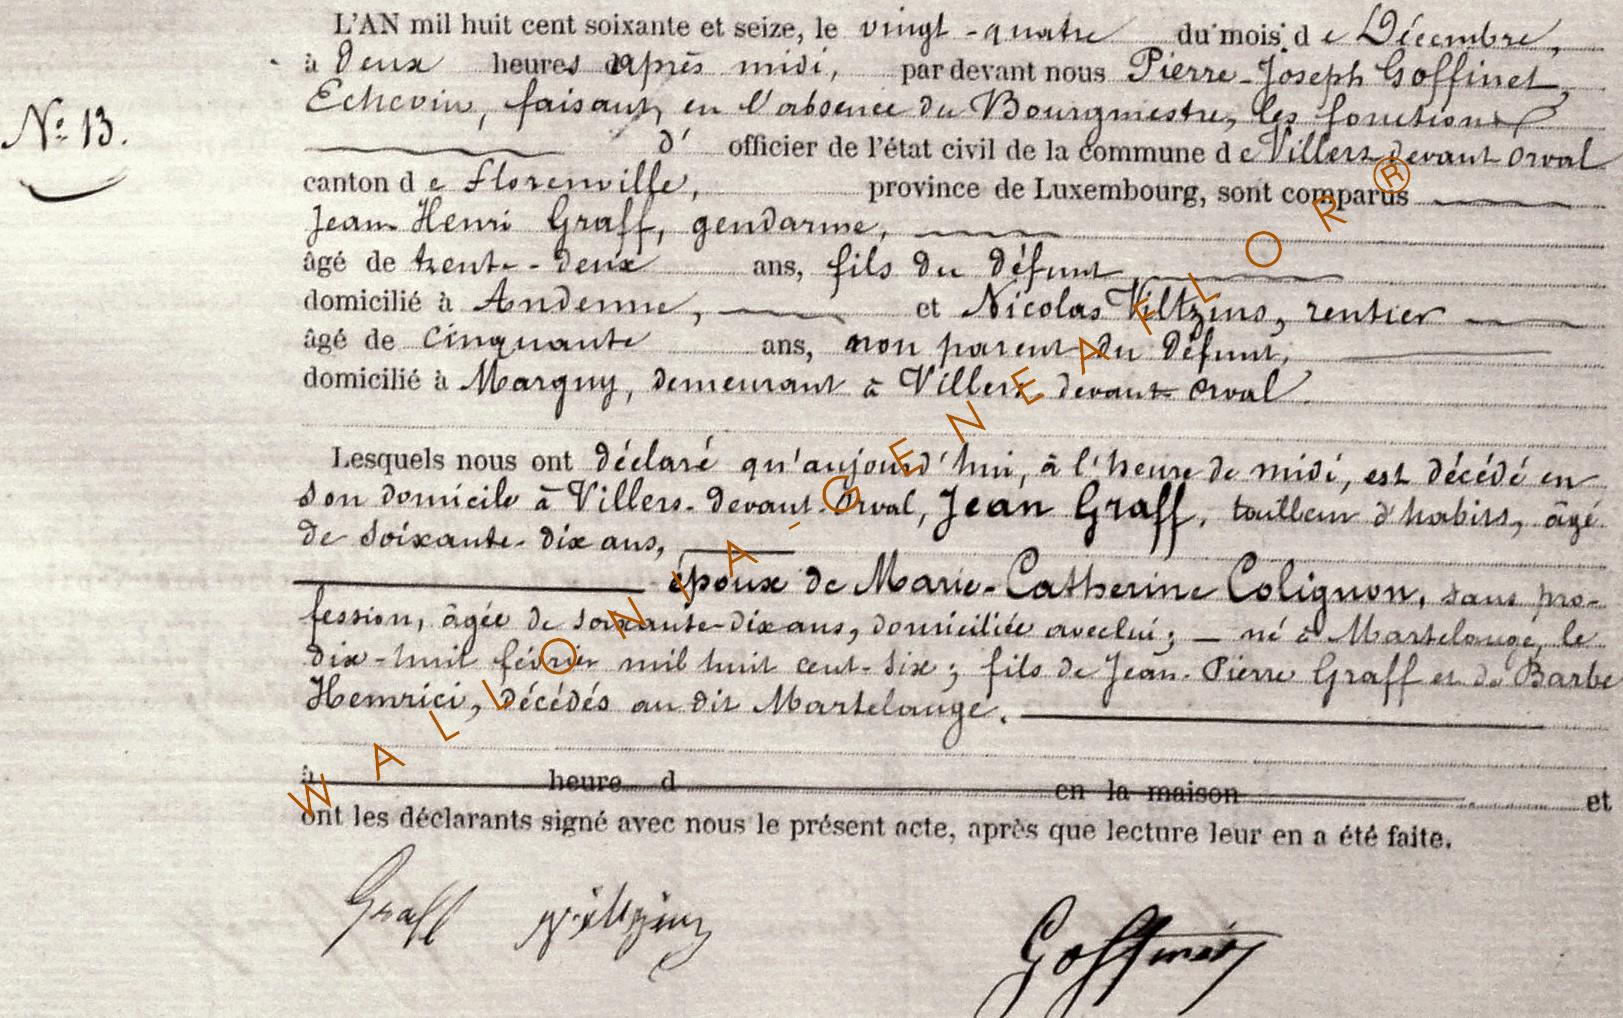 L'AN mil huit cent soixante et seize, le vingt-quatre du mois de Décembre,
à Deux heures après midi, par devant nous Pierre-Joseph Goffinet,
Echevin, faisant, en l'absence du Bourgmestre, les fonctions
N° 13.
d' officier de l'état civil de la commune de Villers devant Orval
canton de Florenville, province de Luxembourg, sont comparus
Jean Henri Graff, gendarme,
âgé de trente-deux ans, fils du défunt,
domicilié à Andenne, et Nicolas Viltzius, rentier
âgé de cinquante ans, non parent du Défunt,
domicilié à Margny, demeurant à Villers devant Orval.
Lesquels nous ont déclaré qu'aujourd'hui, à l'heure de midi, est décédé en
son domicile à Villers-devant-Orval, Jean Graff, tailleur d'habits, âgé
de soixante-dix ans,
époux de Marie-Catherine Colignon, sans pro-
fession, âgée de soixante-dix ans, domiciliée avec lui; — né à Martelange, le
dix-huit février mil huit cent-six; fils de Jean-Pierre Graff et de Barbe
Hemrici, décédés au dit Martelange.
à heure d en la maison et
ont les déclarants signé avec nous le présent acte, après que lecture leur en a été faite.
Graff Viltzius Goffinet
WALLONIA-GENEAFLOR®